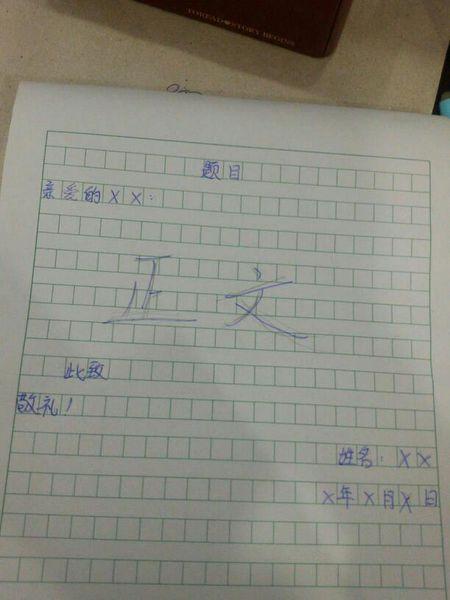 TOREAD♥STORY BEGINS
题目
亲爱的XX:
正文
此致
敬礼!
姓名:XX
X年X月X日